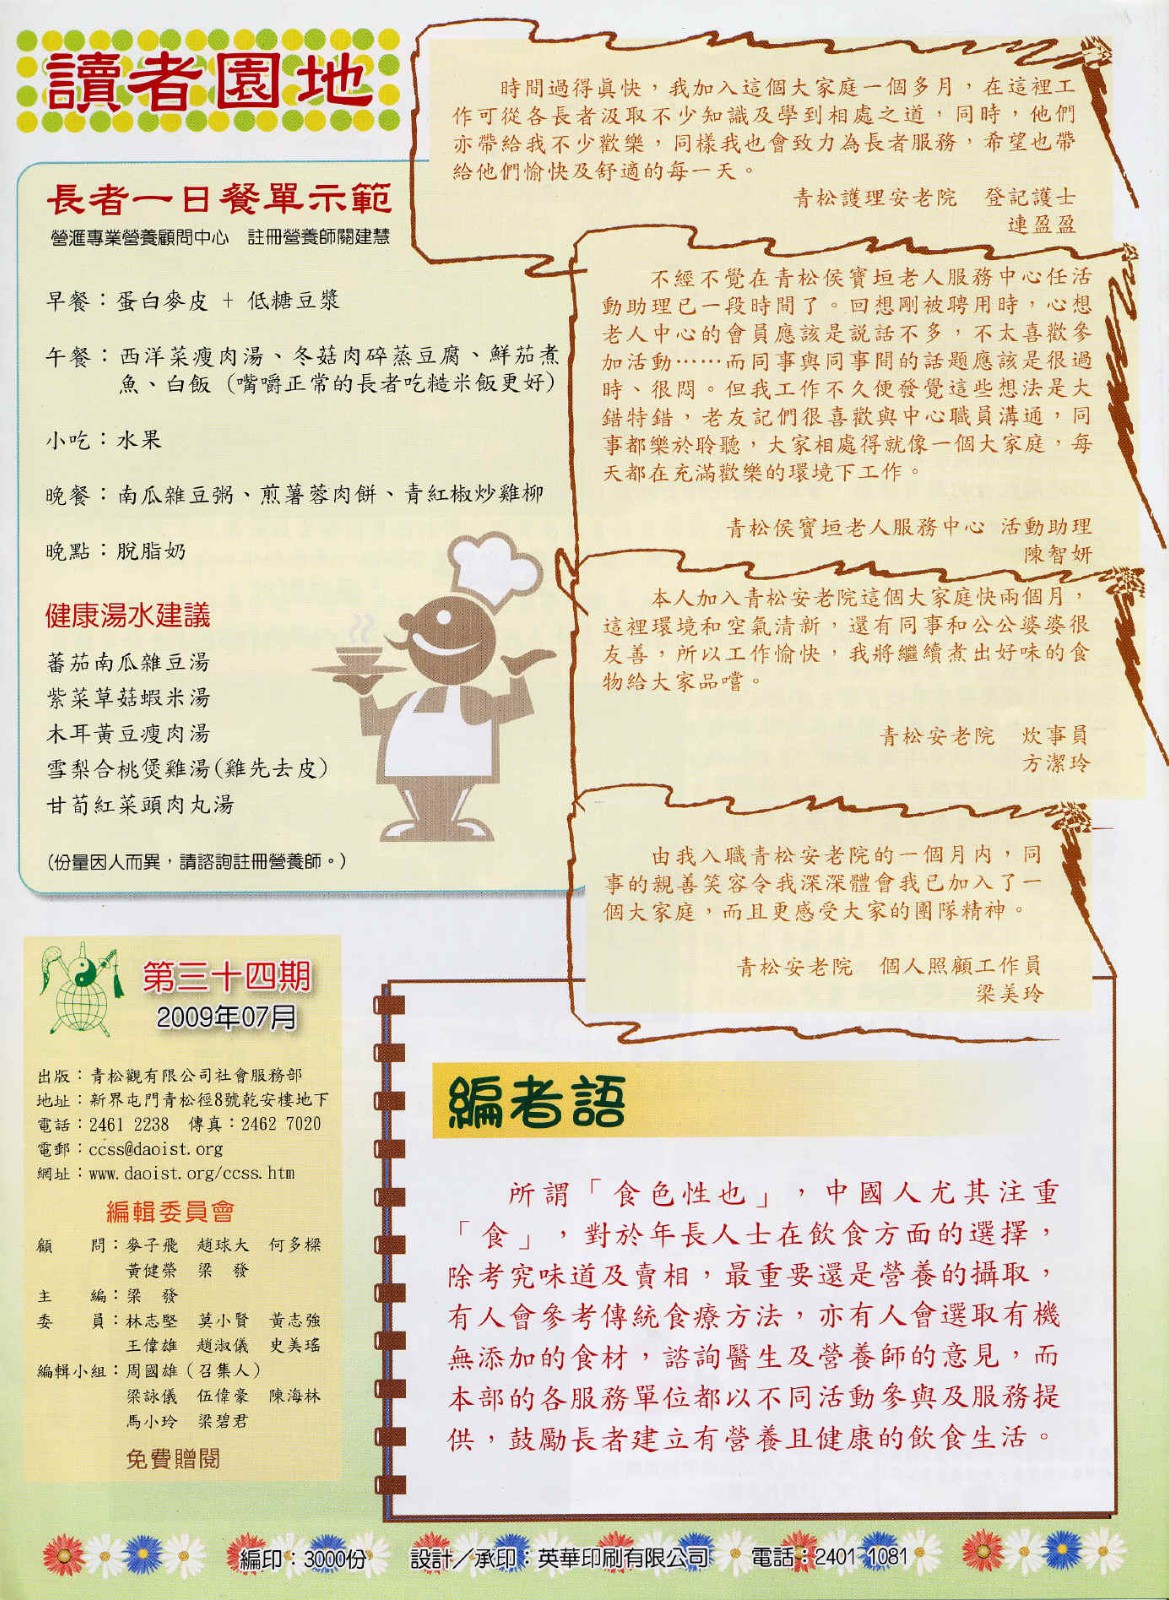 讀者園地
長者一日餐單示範
營滙專業營養顧問中心　註冊營養師關建慧
早餐：蛋白麥皮 + 低糖豆漿
午餐：西洋菜瘦肉湯、冬菇肉碎蒸豆腐、鮮茄煮
魚、白飯 (嘴嚼正常的長者吃糙米飯更好)
小吃：水果
晚餐：南瓜雜豆粥、煎薯蓉肉餅、青紅椒炒雞柳
晚點：脫脂奶
健康湯水建議
蕃茄南瓜雜豆湯
紫菜草菇蝦米湯
木耳黃豆瘦肉湯
雪梨合桃煲雞湯(雞先去皮)
甘荀紅菜頭肉丸湯
(份量因人而異，請諮詢註冊營養師。)
時間過得眞快，我加入這個大家庭一個多月，在這裡工
作可從各長者汲取不少知識及學到相處之道，同時，他們
亦帶給我不少歡樂，同樣我也會致力為長者服務，希望也帶
給他們愉快及舒適的每一天。
青松護理安老院　登記護士
連盈盈
不經不覺在青松侯寶垣老人服務中心任活
動助理已一段時間了。回想剛被聘用時，心想
老人中心的會員應該是說話不多，不太喜歡參
加活動⋯⋯而同事與同事間的話題應該是很過
時、很悶。但我工作不久便發覺這些想法是大
錯特錯，老友記們很喜歡與中心職員溝通，同
事都樂於聆聽，大家相處得就像一個大家庭，每
天都在充滿歡樂的環境下工作。
青松侯寶垣老人服務中心 活動助理
陳智妍
本人加入青松安老院這個大家庭快兩個月，
這裡環境和空氣清新，還有同事和公公婆婆很
友善，所以工作愉快，我將繼續煮出好味的食
物給大家品嚐。
青松安老院　炊事員
方潔玲
由我入職青松安老院的一個月內，同
事的親善笑容令我深深體會我已加入了一
個大家庭，而且更感受大家的團隊精神。
青松安老院　個人照顧工作員
梁美玲
第三十四期
2009年07月
出版：青松觀有限公司社會服務部
地址：新界屯門青松徑8號乾安樓地下
電話：2461 2238　傳真：2462 7020
電郵：ccss@daoist.org
網址：www.daoist.org/ccss.htm
編輯委員會
顧　　問：麥子飛　趙球大　何多樑
黃健榮　梁　發
主　　編：梁　發
委　　員：林志堅　莫小賢　黃志強
王偉雄　趙淑儀　史美瑤
編輯小組：周國雄（召集人）
梁詠儀　伍偉豪　陳海林
馬小玲　梁碧君
免費贈閱
編者語
所謂「食色性也」，中國人尤其注重
「食」，對於年長人士在飲食方面的選擇，
除考究味道及賣相，最重要還是營養的攝取，
有人會參考傳統食療方法，亦有人會選取有機
無添加的食材，諮詢醫生及營養師的意見，而
本部的各服務單位都以不同活動參與及服務提
供，鼓勵長者建立有營養且健康的飲食生活。
編印：3000份　設計／承印：英華印刷有限公司　電話：2401 1081